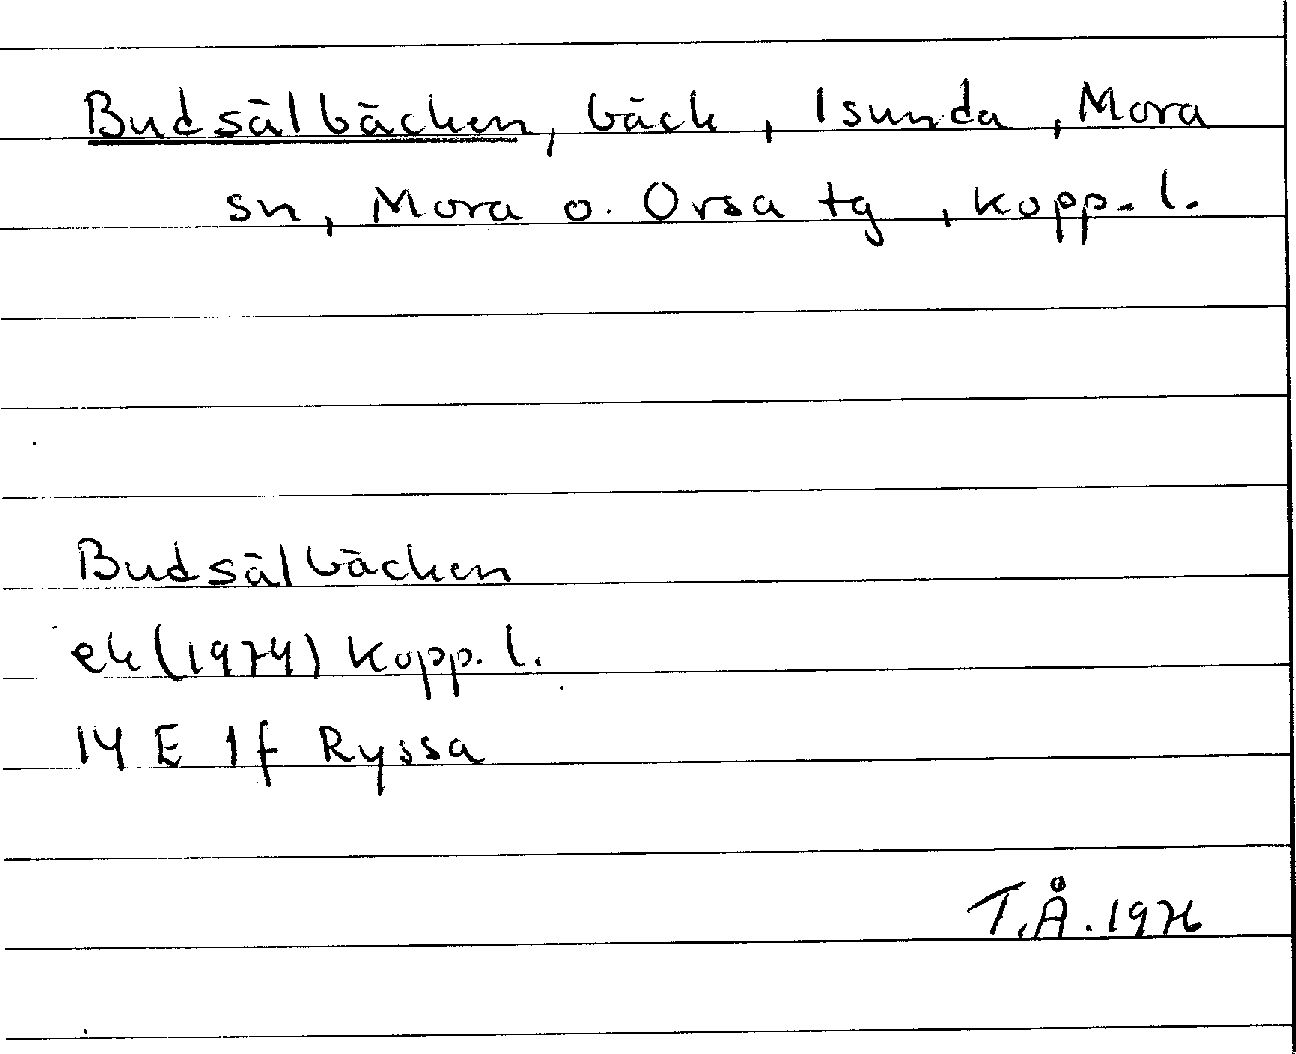 Budsälbäcken, bäck, Isunda, Mora
sn, Mora o. Orsa tg, Kopp. l.
Budsälbäcken
ek (1974) Kopp. l.
14 E 1f Ryssa
T.Å. 1976